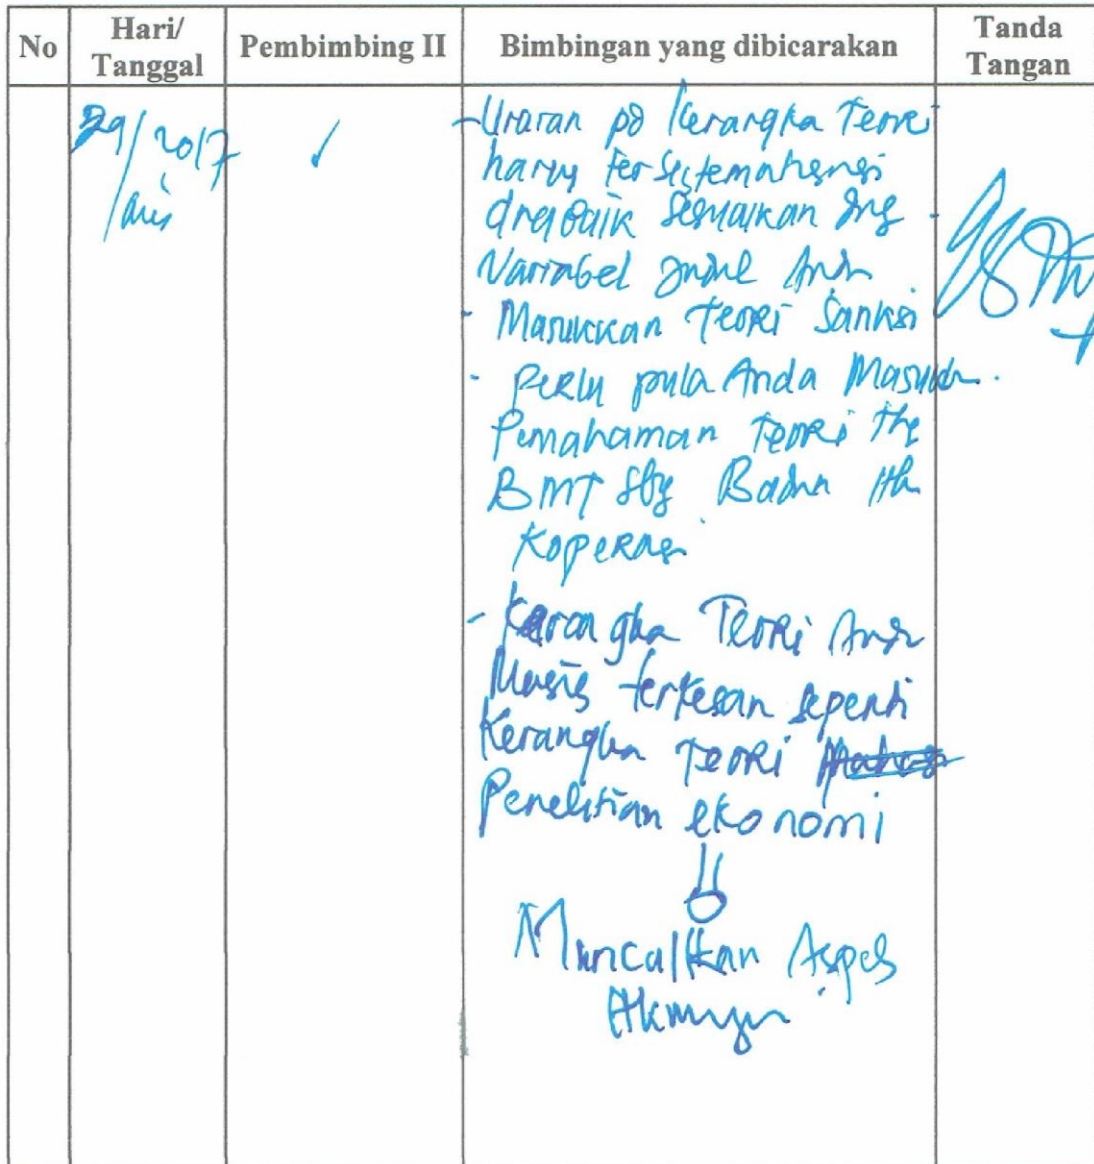 No
Hari/
Tanggal
Pembimbing II
Bimbingan yang dibicarakan
Tanda
Tangan
29/2017
✓
- Uraian pd Kerangka Teori
harus tersistematisasi
dng baik sesuaikan dng
Variabel judul Anda
- Masukkan Teori Sanksi
- Perlu pula Anda Masukkan
Pemahaman Teori ttg
BMT sbg Badan Hk
Koperasi
- Kerangka Teori Anda
Masih terkesan seperti
Kerangka Teori
Penelitian ekonomi
Munculkan Aspek
Hkmnya